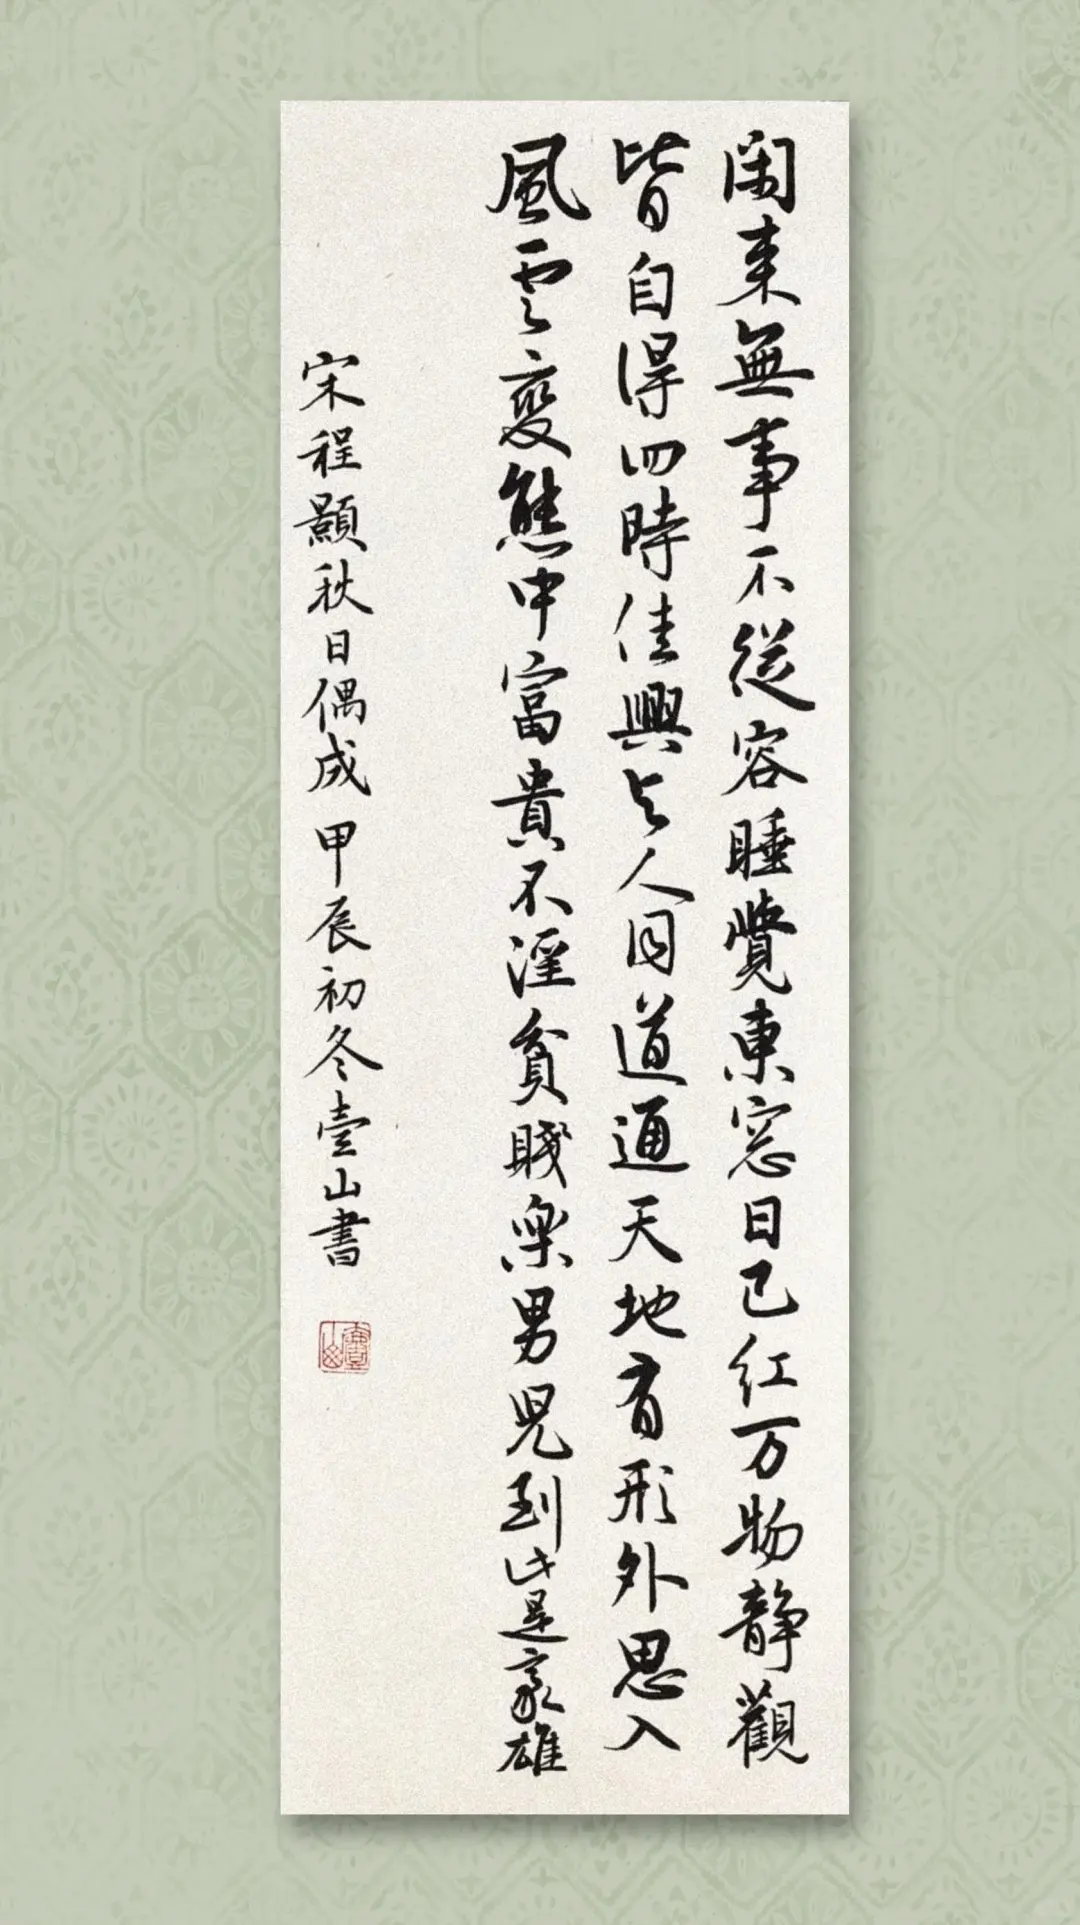 閑来無事不從容睡覺東窓日已红万物静觀
皆自得四時佳興与人同道通天地有形外思入
風雲變態中富貴不淫貧賤樂男兒到此是豪雄
宋程顥秋日偶成 甲辰初冬壹山書